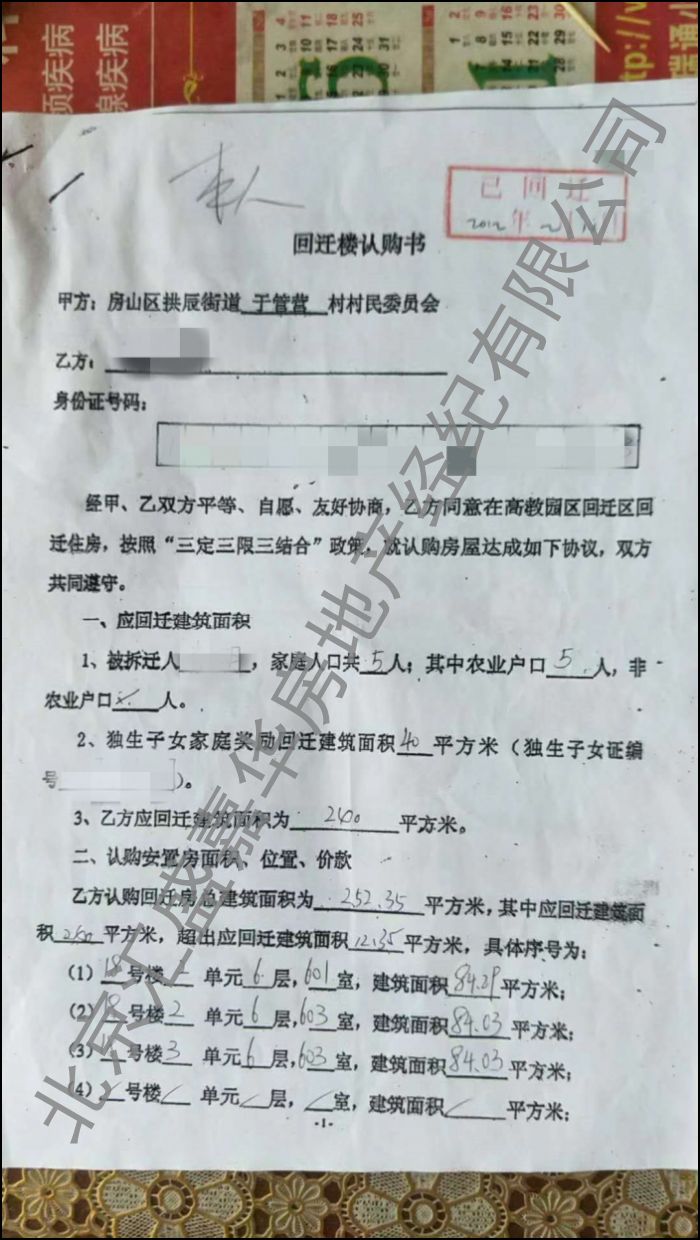 颈疾病
腺疾病
本人
已回迁
2012年2
回迁楼认购书
甲方：房山区拱辰街道 于管营 村村民委员会
乙方：
身份证号码：
经甲、乙双方平等、自愿、友好协商，乙方同意在高教园区回迁区回
迁住房，按照“三定三限三结合”政策，就认购房屋达成如下协议，双方
共同遵守。
一、应回迁建筑面积
1、被拆迁人，家庭人口共5人；其中农业户口5人，非
农业户口 人。
2、独生子女家庭奖励回迁建筑面积40平方米（独生子女证编
号）。
3、乙方应回迁建筑面积为240平方米。
二、认购安置房面积、位置、价款
乙方认购回迁房总建筑面积为252.35平方米，其中应回迁建筑面
积240平方米，超出应回迁建筑面积12.35平方米，具体序号为：
(1) 18号楼 单元6层，601室，建筑面积84.29平方米；
(2) 18号楼2单元6层，603室，建筑面积84.03平方米；
(3) 号楼3单元6层，603室，建筑面积84.03平方米；
(4) 号楼 单元 层， 室，建筑面积 平方米；
-1-
北京汇盛嘉华房地产经纪有限公司